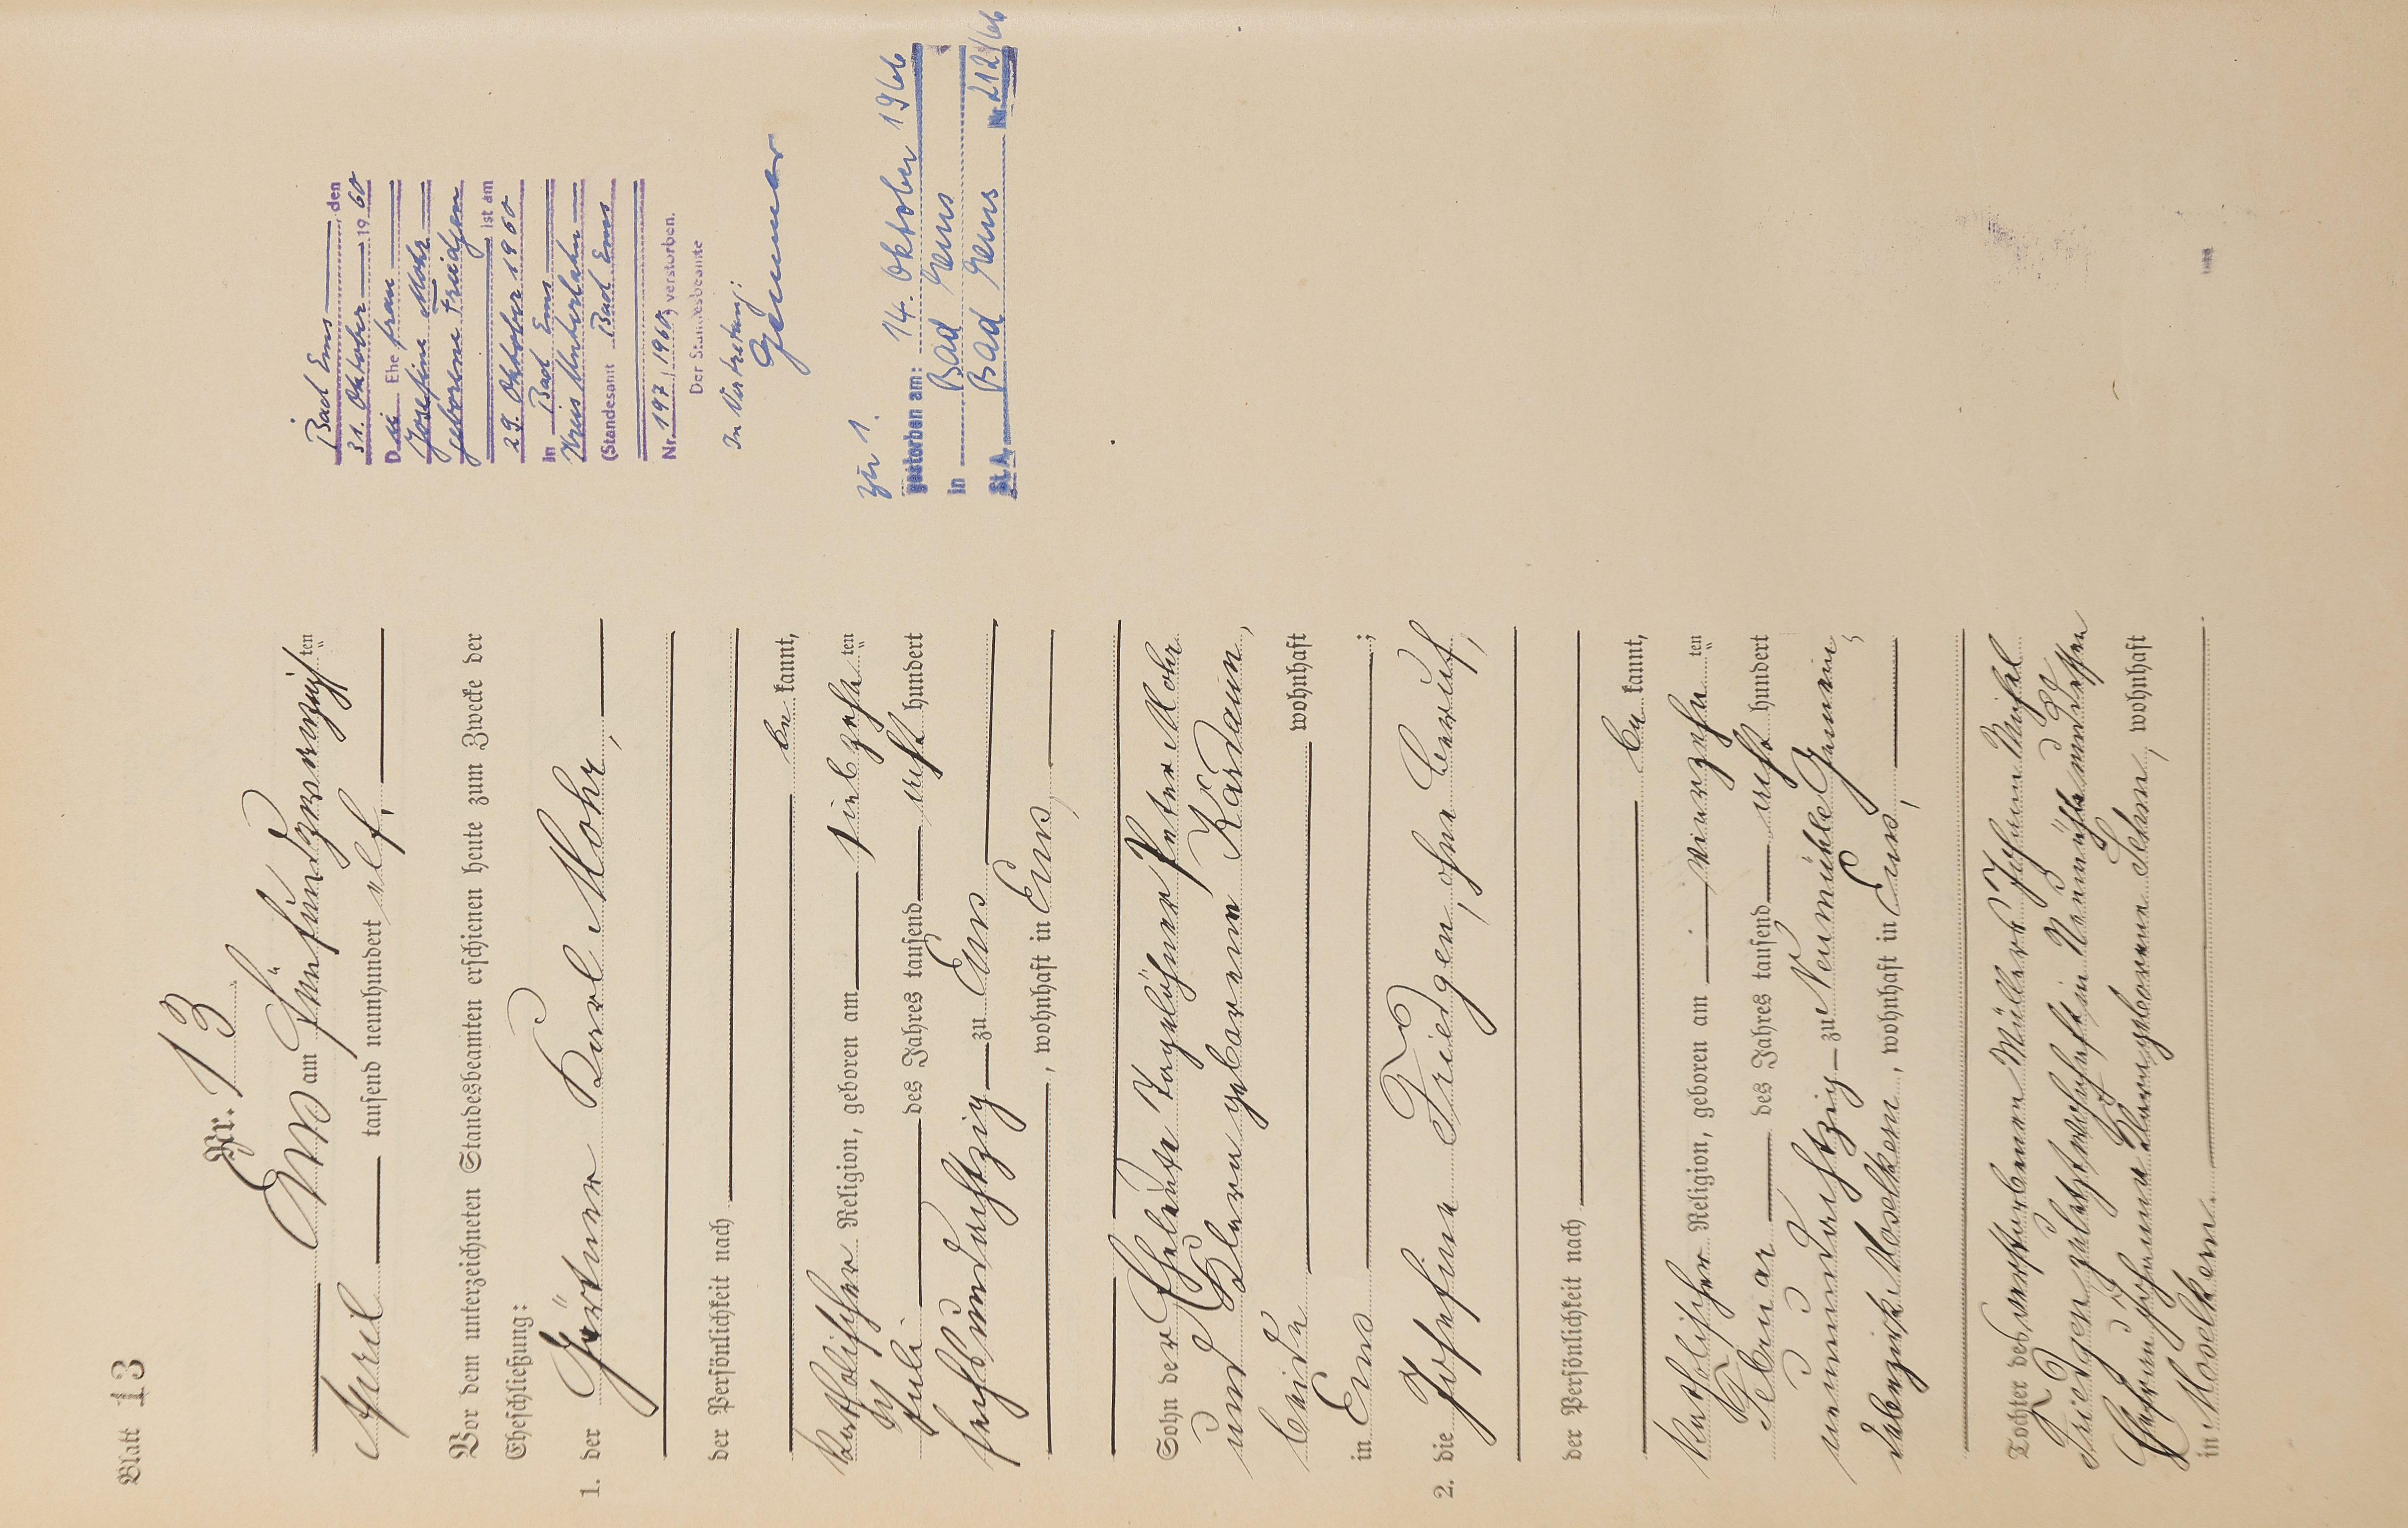 Blatt 13
Nr. 13
Ems am fünfundzwanzigsten
April tausend neunhundert elf.
Vor dem unterzeichneten Standesbeamten erschienen heute zum Zwecke der
Eheschließung:
1. der Gärtner Karl Mohr,
der Persönlichkeit nach
be kannt,
katholischer Religion, geboren am siebzehn ten
Juli des Jahres tausend acht hundert
sechsundachtzig zu Ems
, wohnhaft in Ems,
Sohn der Eheleute Tagelöhner Peter Mohr
und Klara geborenen Kärdaun,
beide wohnhaft
in Ems ;
2. die Josefine Friedgen, ohne Beruf,
der Persönlichkeit nach
be kannt,
katholischer Religion, geboren am vierzehn ten
Februar des Jahres tausend acht hundert
neunundachtzig zu Neumühle Gemein
debezirk Moselkern, wohnhaft in Ems,
Tochter des verstorbenen Müllers Johann
Friedgen zuletzt wohnhaft in Neumühle und dessen
Ehefrau Johanna geborene Sehn, wohnhaft
in Moselkern.
Bad Ems, den
31. Oktober 1960
Die Ehefrau
Josefine Mohr
geborene Friedgen
ist am
29. Oktober 1960
in Bad Ems
Kreis Unterlahn
(Standesamt Bad Ems
Nr. 197/1960) verstorben.
Der Standesbeamte
In Vertretung:
zu 1.
gestorben am: 14. Oktober 1966
in Bad Ems
St.A. Bad Ems Nr. 212/66